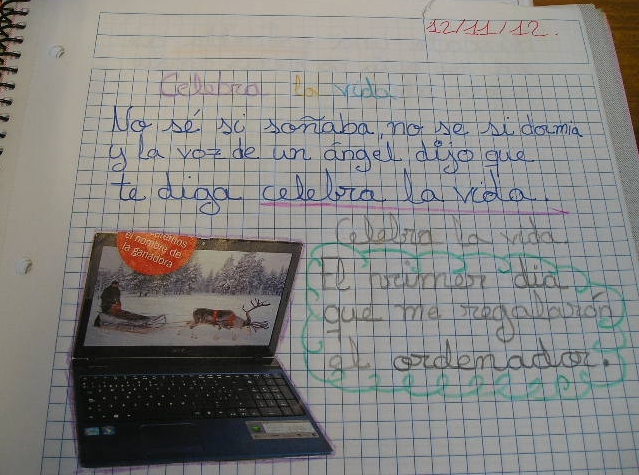 12/11/12.
Celebra la vida
No sé si soñaba, no se si dormia
y la voz de un ángel dijo que
te diga celebra la vida.
el nombre de
la ganadora
Celebra la vida
El primer dia
que me regalarón
el ordenador.
acer